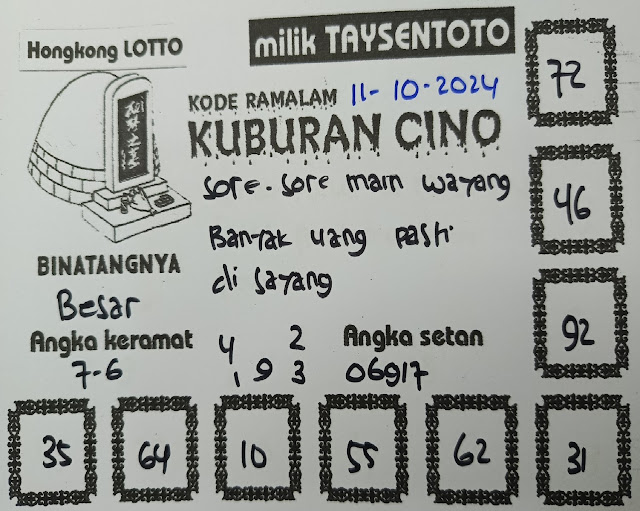 Hongkong LOTTO
milik TAYSENTOTO
72
KODE RAMALAM 11-10-2024
KUBURAN CINO
Sore-Sore main wayang
46
Banyak uang pasti
di sayang
BINATANGNYA
Besar
92
Angka keramat
7-6
4 2
1 9 3
Angka setan
06917
35 64 10 55 62 31